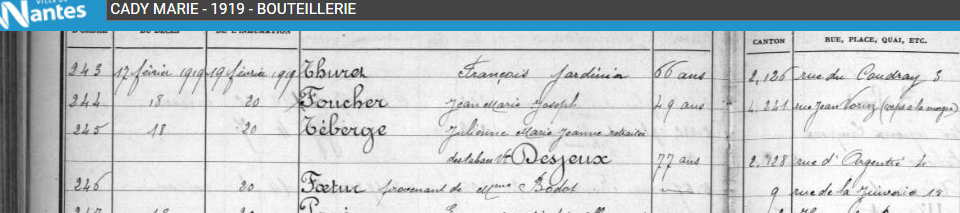 VILLE DE
Nantes
CADY MARIE - 1919 - BOUTEILLERIE
D'ORDRE DU DÉCÈS DE L'INHUMATION CANTON RUE, PLACE, QUAI, ETC.
243 17 février 1919 19 février 1919 Thuret François Jardinier 66 ans 2,126 rue du Coudray 3
244 18 20 Foucher Jean Marie Joseph 49 ans 4,241 rue Jean (corps à la morgue)
245 18 20 Téberge Julienne Marie Jeanne retraitée
des tabacs Vve Desjeux 77 ans 2,128 rue d'Argentré 4
246 20 Fœtus provenant de Mme Bodot 9 rue de la Juiverie 15